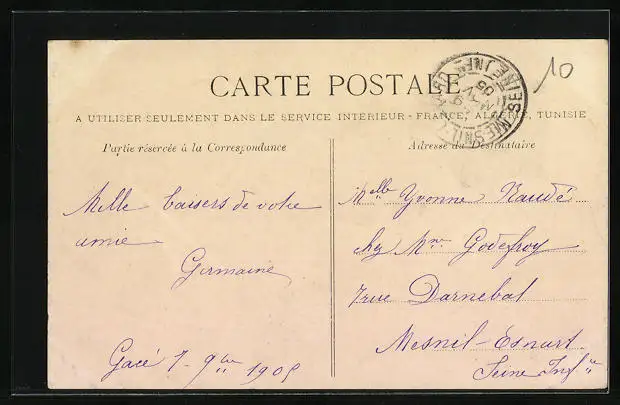 10
CARTE POSTALE
A UTILISER SEULEMENT DANS LE SERVICE INTERIEUR - FRANCE, ALGERIE, TUNISIE
Partie réservée à la Correspondance
Adresse du Destinataire
Mille baisers de votre
amie
Germaine
Gacé 1- 9bre 1905
Melle Yvonne Naudé
chz Mme Godefroy
7 rue Darnebat
Mesnil-Esnart
Seine Infre